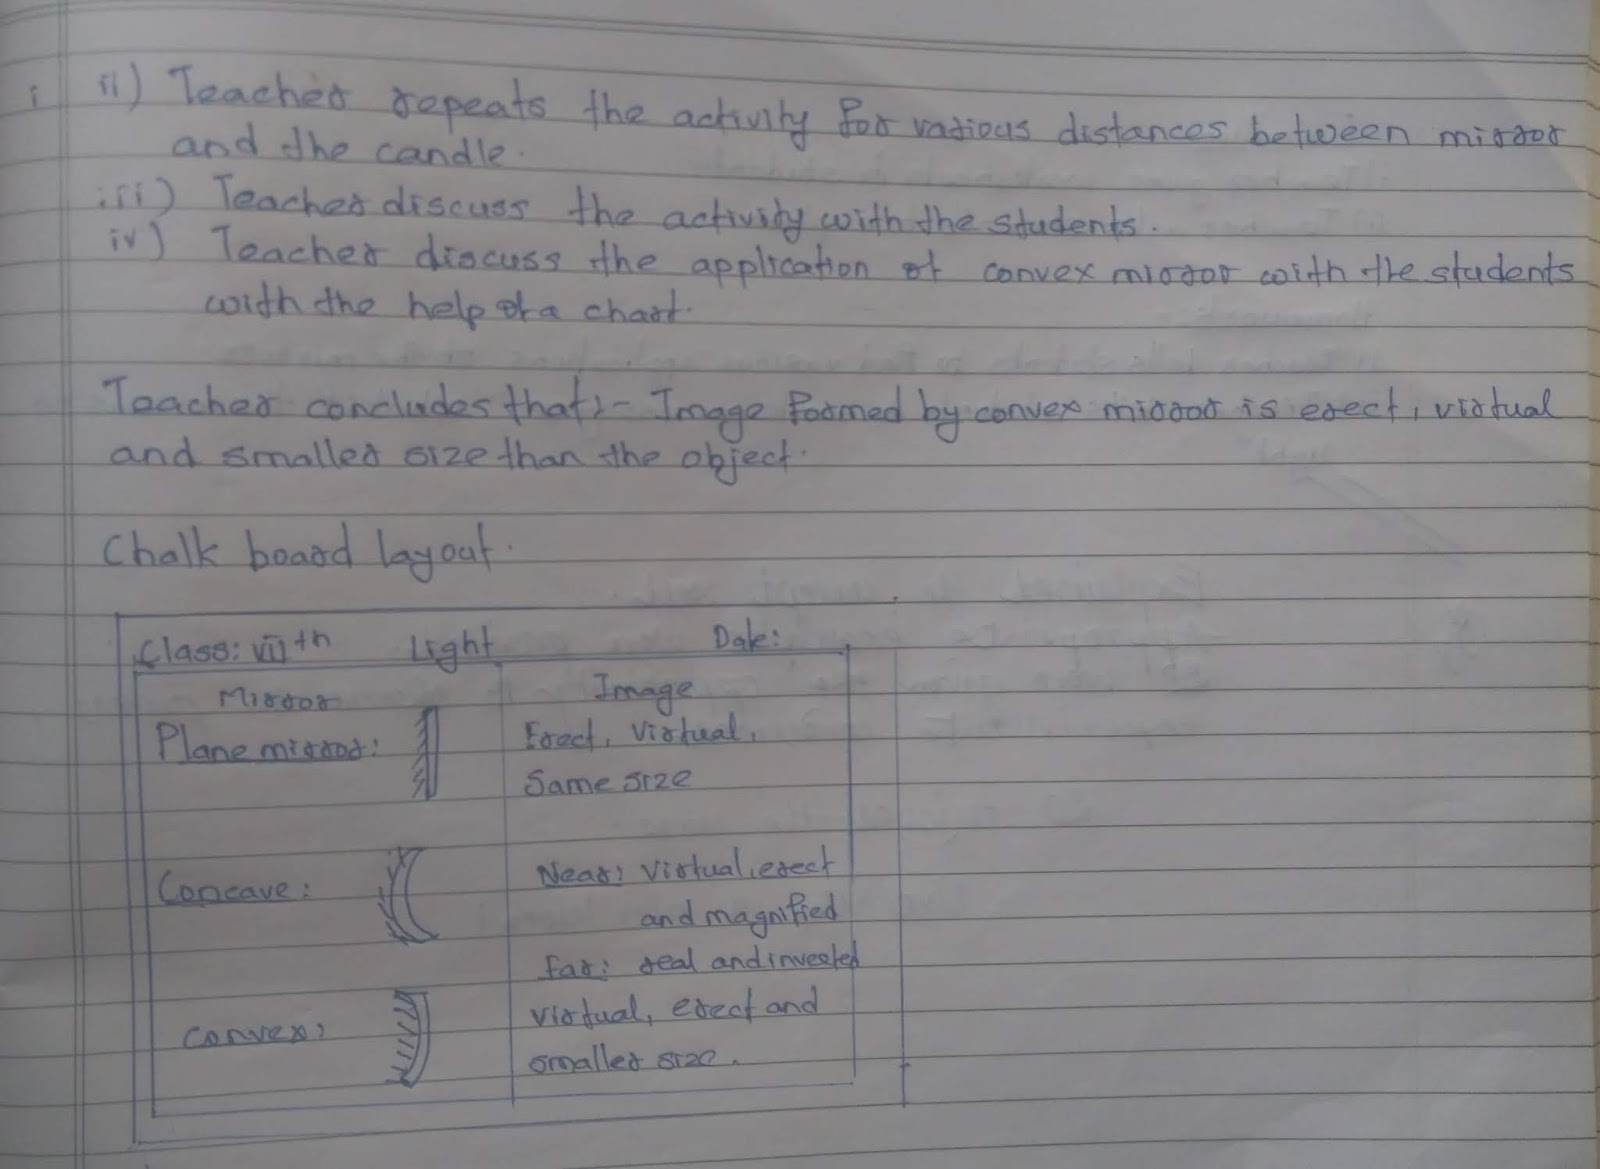 ii) Teacher repeats the activity for various distances between mirror
and the candle.
iii) Teacher discuss the activity with the students.
iv) Teacher discuss the application of convex mirror with the students
with the help of a chart.
Teacher concludes that:- Image formed by convex mirror is erect, virtual
and smaller size than the object.
Chalk board layout.
Class: VIIth Light Date:
Mirror Image
Plane mirror: Erect, virtual,
Same size
Concave: Near: virtual, erect
and magnified
Far: real and inverted
Convex: virtual, erect and
smaller size.